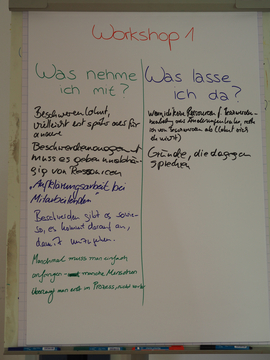 Workshop 1
Was nehme
ich mit?
Beschweren lohnt,
vielleicht erst später oder für
andere
Beschwerdemanagement
muss es geben unabhän-
gig von Ressourcen
"Aufklärungsarbeit bei
Mitarbeitenden"
Beschwerden gibt es sowie-
so, es kommt darauf an,
damit umzugehen.
Manchmal muss man einfach
anfangen - manche Menschen
überzeugt man erst im Prozess, nicht vorher
Was lasse
ich da?
Wenn ich keine Ressourcen
ich von
Gründe, die dagegen
sprechen